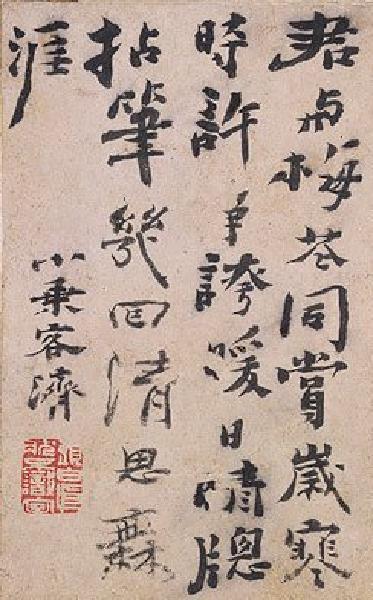 君与梅花同賞歲寒
時許争誇暖日晴牕
拈筆幾回清思無
涯
小乘客濟